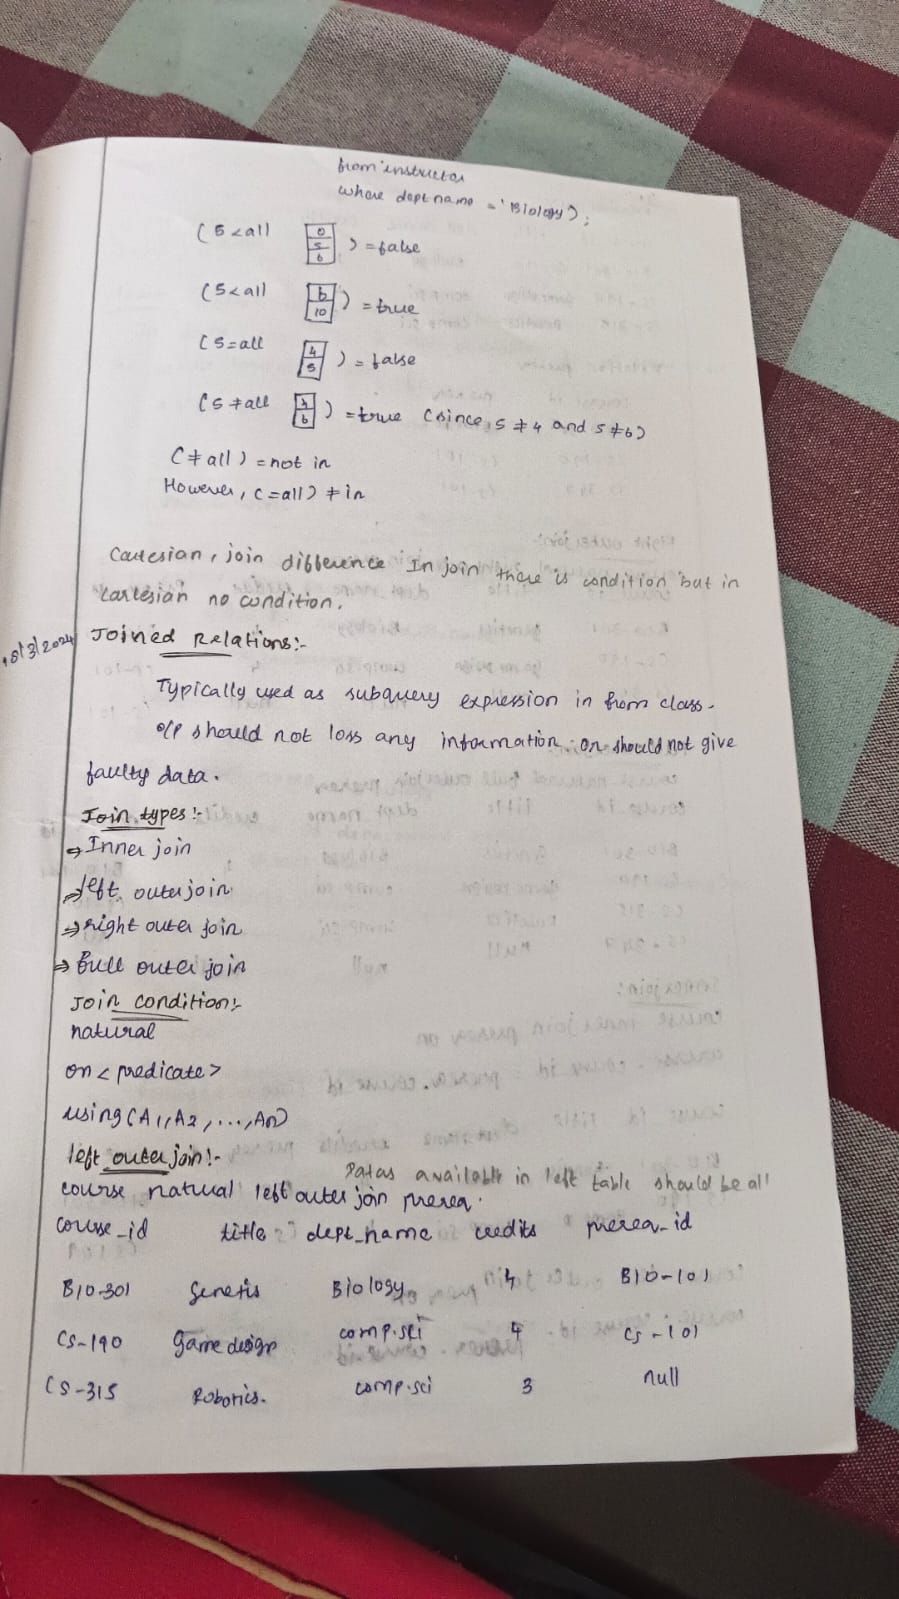 from instructor
where dept name = 'Biology');
(5 < all 0 5 6 ) = false
(5 < all 6 10 ) = true
(5 = all 4 5 ) = false
(5 ≠ all 4 6 ) = true (since, 5 ≠ 4 and 5 ≠ 6)
(≠ all) = not in
However, (= all) ≠ in
Cartesian, join difference In join there is condition but in
cartesian no condition.
/3/2024 Joined Relations:-
Typically used as subquery expression in from class.
o/p should not loss any information. or should not give
faulty data.
Join types:-
⇒ Inner join
⇒ left outer join
⇒ right outer join
⇒ full outer join
Join condition:-
natural
on < predicate >
using (A1, A2, ..., An)
left outer join:-
Datas available in left table should be all
course natural left outer join prereq.
course_id title dept_name credits prereq_id
BIO-301 Genetis Biology 4 BIO-101
CS-190 Game design comp.sci 4 CS-101
CS-315 Robotics. comp.sci 3 null